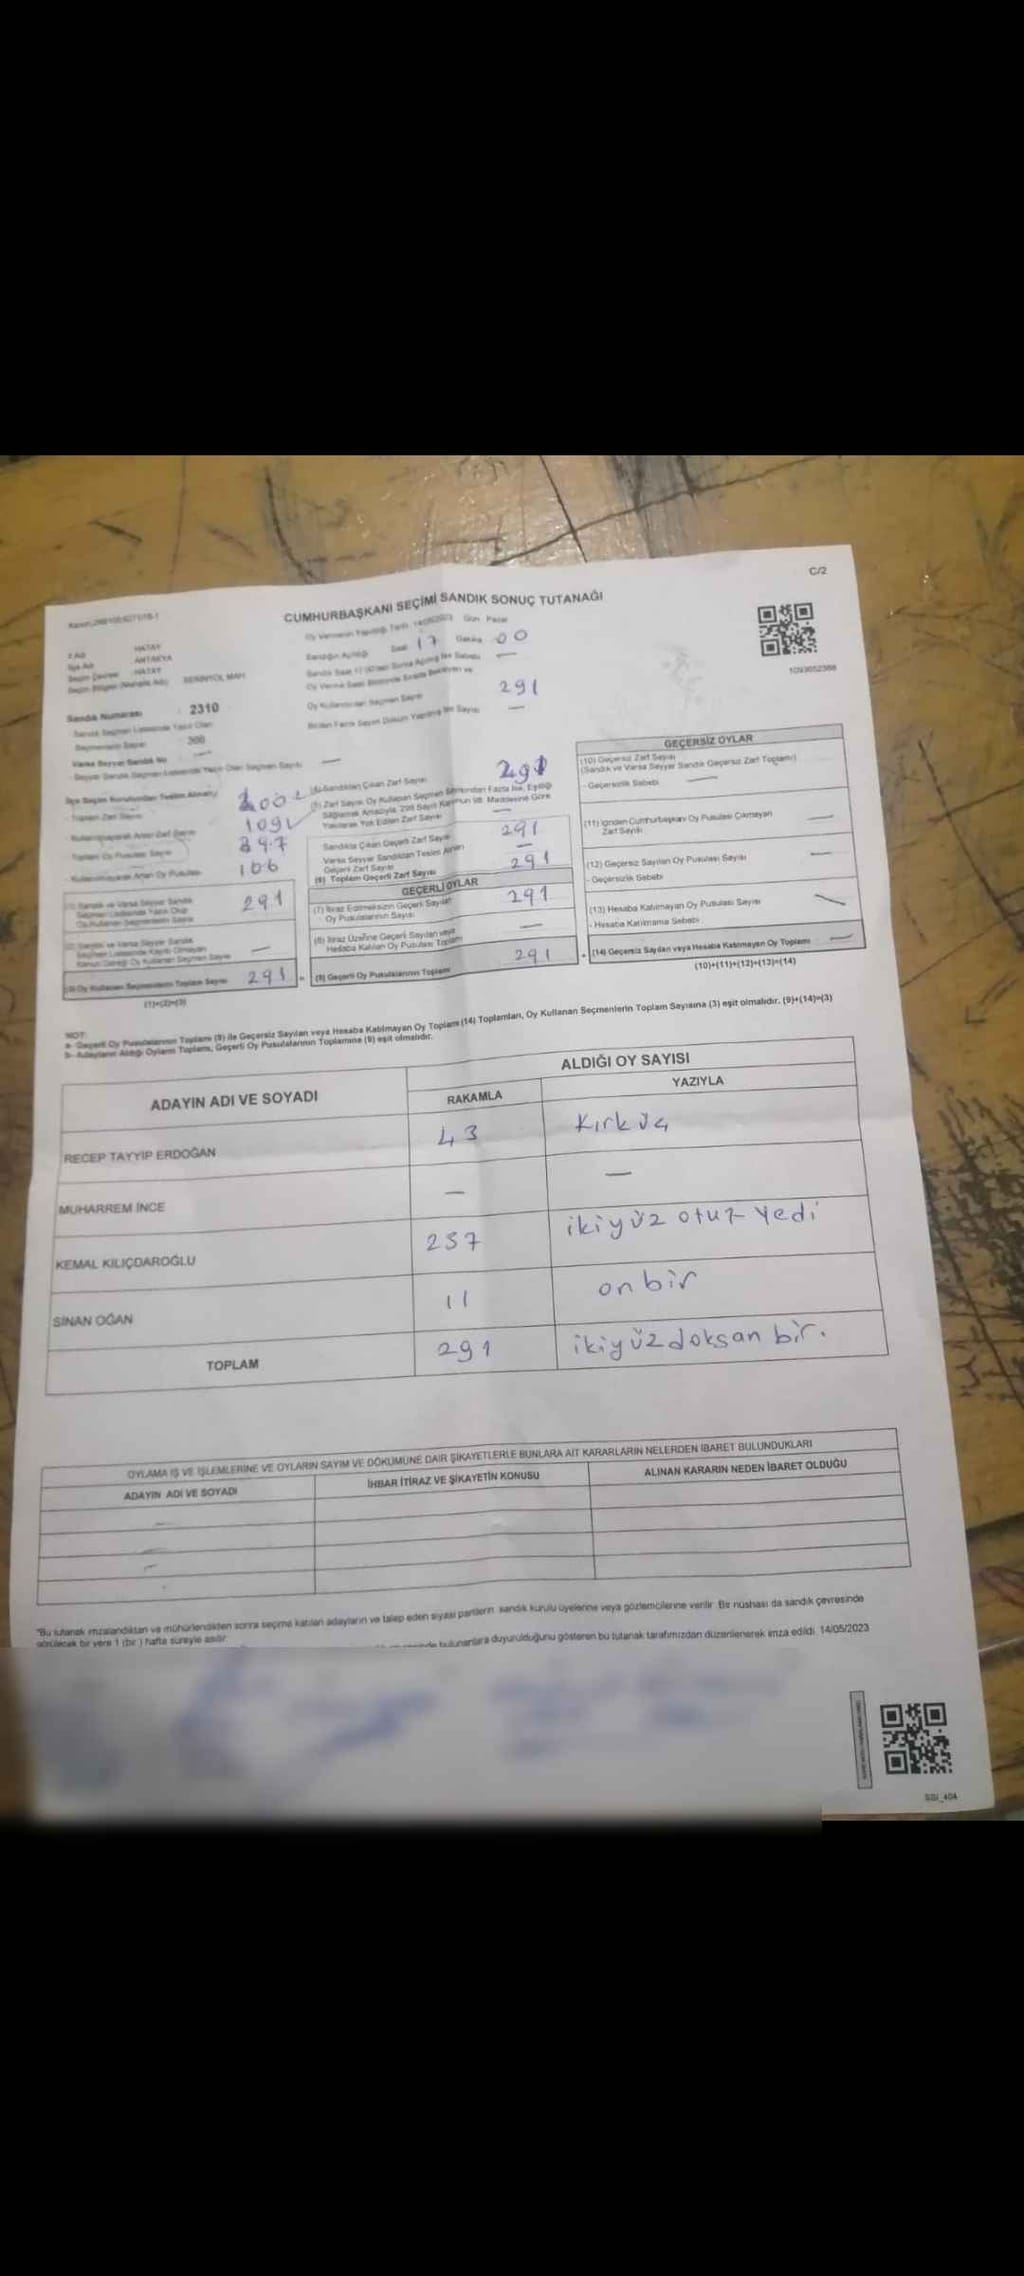 C/2
CUMHURBAŞKANI SEÇİMİ SANDIK SONUÇ TUTANAĞI
Oy Vermenin Yapıldığı Tarih : 14/05/2023 Gün Pazar
İl Adı : HATAY
İlçe Adı : ANTAKYA
Seçim Çevresi : HATAY
Sandığın Açıldığı Saat 17 Dakika 00
1093052388
Oy Kullandırılan Seçmen Sayısı 291
Sandık Numarası : 2310
Seçmenlerin Sayısı : 300
Varsa Seyyar Sandık No —
Birden Fazla Sayım Döküm Yapılmış İse Sayısı —
106
(1) Sandık ve Varsa Seyyar Sandık
Seçmen Listesinde Yazılı Olup
Oy Kullanan Seçmenlerin Sayısı 291
(3) Oy Kullanan Seçmenlerin Toplam Sayısı 291
(1)+(2)=(3)
(4) Sandıktan Çıkan Zarf Sayısı 291
(5) Zarf Sayısı Oy Kullanan Seçmen Sayısından Fazla İse, Eşitliği
Sağlamak Amacıyla, 298 Sayılı Kanunun 98. Maddesine Göre
Yakılarak Yok Edilen Zarf Sayısı —
Sandıkta Çıkan Geçerli Zarf Sayısı 291
Varsa Seyyar Sandıktan Teslim Alınan
Geçerli Zarf Sayısı —
(6) Toplam Geçerli Zarf Sayısı 291
GEÇERLİ OYLAR
(7) İtiraz Edilmeksizin Geçerli Sayılan
Oy Pusulasının Sayısı 291
(8) İtiraz Üzerine Geçerli Sayılan veya
Hesaba Katılan Oy Pusulası Toplamı —
(9) Geçerli Oy Pusulalarının Toplamı 291
GEÇERSİZ OYLAR
(10) Geçersiz Zarf Sayısı
(Sandık ve Varsa Seyyar Sandık Geçersiz Zarf Toplamı)
- Geçersizlik Sebebi —
(11) İçinden Cumhurbaşkanı Oy Pusulası Çıkmayan
Zarf Sayısı —
(12) Geçersiz Sayılan Oy Pusulası Sayısı —
- Geçersizlik Sebebi
(13) Hesaba Katılmayan Oy Pusulası Sayısı
- Hesaba Katılmama Sebebi
(14) Geçersiz Sayılan veya Hesaba Katılmayan Oy Toplamı —
(10)+(11)+(12)+(13)=(14)
NOT:
a- Geçerli Oy Pusulalarının Toplamı (9) ile Geçersiz Sayılan veya Hesaba Katılmayan Oy Toplam (14) Toplamları, Oy Kullanan Seçmenlerin Toplam Sayısına (3) eşit olmalıdır. (9)+(14)=(3)
b- Adayların Aldığı Oyların Toplamı, Geçerli Oy Pusulalarının Toplamına (9) eşit olmalıdır.
ADAYIN ADI VE SOYADI
ALDIĞI OY SAYISI
RAKAMLA YAZIYLA
RECEP TAYYİP ERDOĞAN 43 Kırküç
MUHARREM İNCE — —
KEMAL KILIÇDAROĞLU 237 ikiyüz otuz yedi
SİNAN OĞAN 11 onbir
TOPLAM 291 ikiyüzdoksan bir.
OYLAMA İŞ VE İŞLEMLERİNE VE OYLARIN SAYIM VE DÖKÜMÜNE DAİR ŞİKAYETLERLE BUNLARA AİT KARARLARIN NELERDEN İBARET BULUNDUKLARI
ADAYIN ADI VE SOYADI İHBAR İTİRAZ VE ŞİKAYETİN KONUSU ALINAN KARARIN NEDEN İBARET OLDUĞU
"Bu tutanak imzalandıktan ve mühürlendikten sonra seçime katılan adayların ve talep eden siyasi partilerin sandık kurulu üyelerine veya gözlemcilerine verilir. Bir nüshası da sandık çevresinde
görülecek bir yere 1 (bir) hafta süreyle asılır
bulunanlara duyurulduğunu gösteren bu tutanak tarafımızdan düzenlenerek imza edildi. 14/05/2023